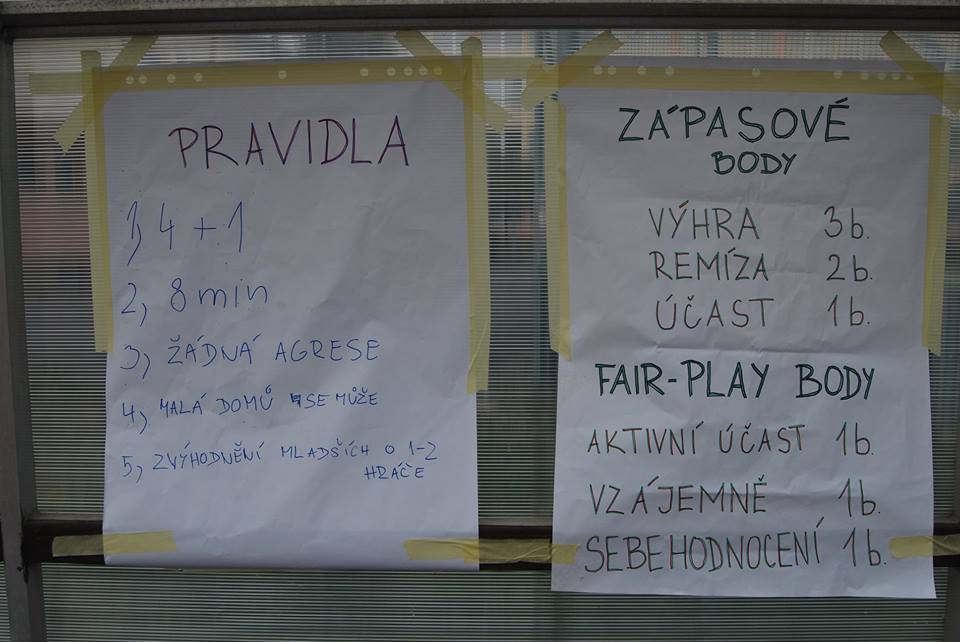 PRAVIDLA
1, 4 + 1
2, 8 min
3, ŽÁDNÁ AGRESE
4, MALÁ DOMŮ SE MŮŽE
5, ZVÝHODNĚNÍ MLADŠÍCH O 1-2
HRÁČE
ZÁPASOVÉ
BODY
VÝHRA 3b.
REMÍZA 2b.
ÚČAST 1b.
FAIR-PLAY BODY
AKTIVNÍ ÚČAST 1b.
VZÁJEMNĚ 1b.
SEBEHODNOCENÍ 1b.